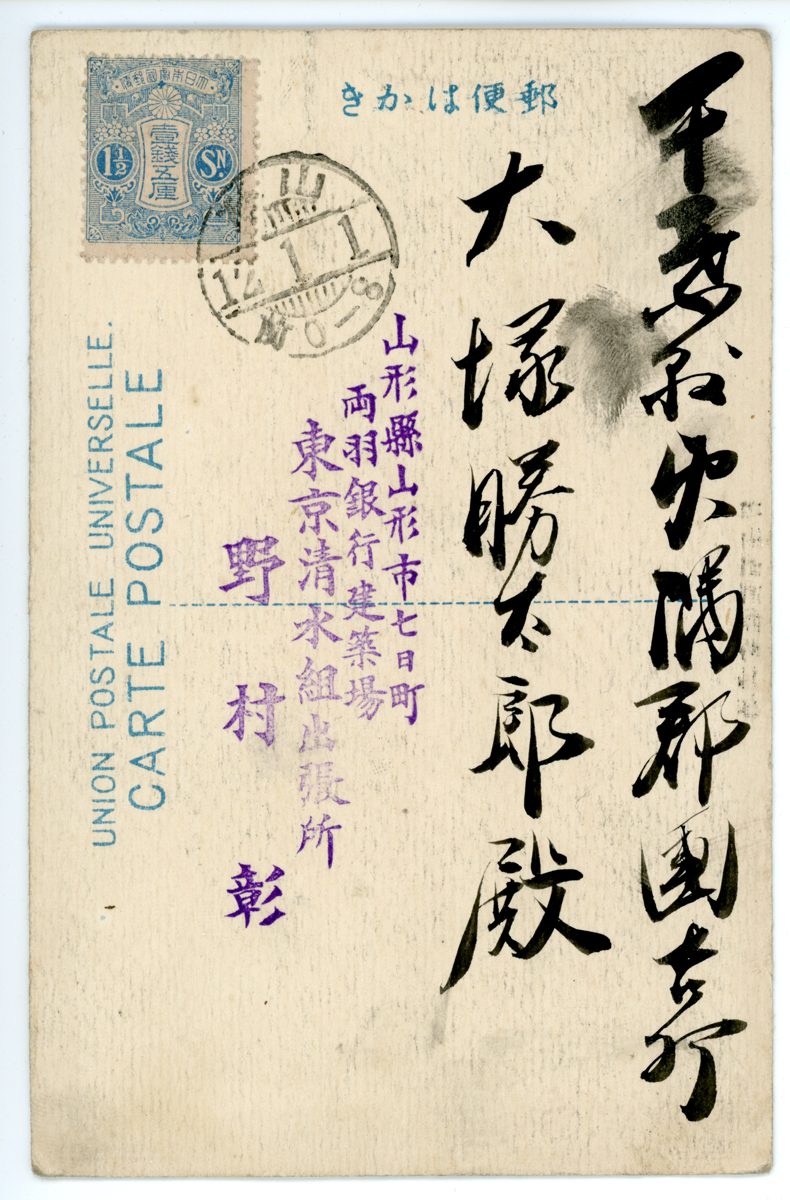 郵便はかき
千葉縣夷隅郡國吉町
大塚勝太郎殿
山形縣山形市七日町
両羽銀行建築場
東京清水組出張所
野村彰
大日本帝國郵便
壹錢五厘
1½
SN.
山形
12.1.1
0-8
UNION POSTALE UNIVERSELLE.
CARTE POSTALE